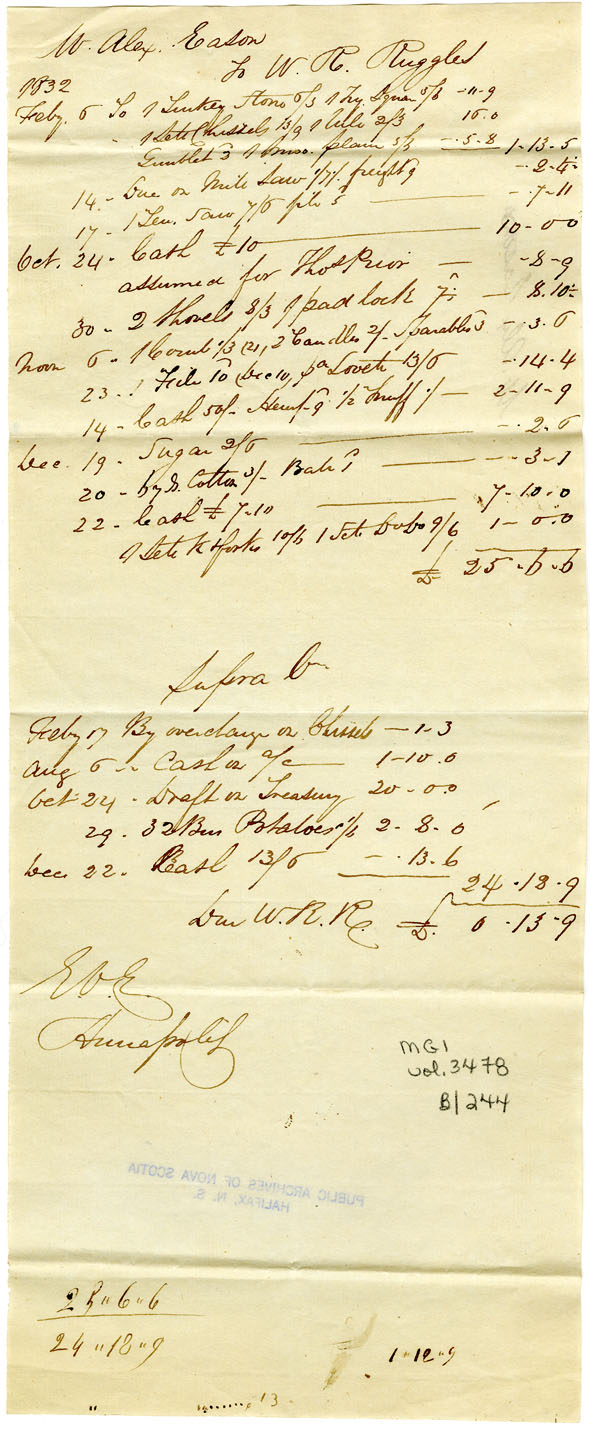 W. Alex. Eason
To W. R. Ruggles
1832
Feby. 6 To 1 Turkey Stone 6/3 1 Try Squar 5/6 -11-9
1 Sett Chissels 13/9 1 File 2/3 16.0
Gimblet 3 1 plain 5/3 -.5-8 1-13-5
14. Due on Mill Saw 1/7½ freight 9 -.2-4½
17. 1 Ten. Saw 7/6 5 -.7-11
Oct. 24. Cash £10 10-0 0
assumed for Thos Prior -.8-9
30. 2 Shovels 8/3 1 pad lock -.8.10½
Novr 6. 1 Comb 1/3 2 Candles 2/- Sparables 3 -.3.6
23. 1 File 10 (Dec 10, pr Lovett 13/6 -.14.4
14. Cash 50/- Hemp 9 ½ Snuff 1/- 2-11-9
Dec. 19. Sugar 2/6 -.2.6
20. by S. Cotton 3/- Ball 1 -.3-1
22. Cash £7-10 7-10.0
1 Sett K & forks 10/6 1 Sett Do Do 9/6 1-0.0
£ 25.6.6
Supra Cr
Feby 17 By overcharge on Chissels -1-3
Aug 6 Cash on a/c 1-10.0
Oct 24. Draft on Treasury 20-0.0
29. 32 Bus Potatoes 1/6 2-8.0
Dec 22. Cash 13/6 -.13.6
24.12.9
Due W. R. R. £ 0.13-9
E. O. E.
Annapolis
MG1
vol. 3478
B/244
PUBLIC ARCHIVES OF NOVA SCOTIA
HALIFAX, N. S.
25"6"6
24"12"9
1"12"9
" 13